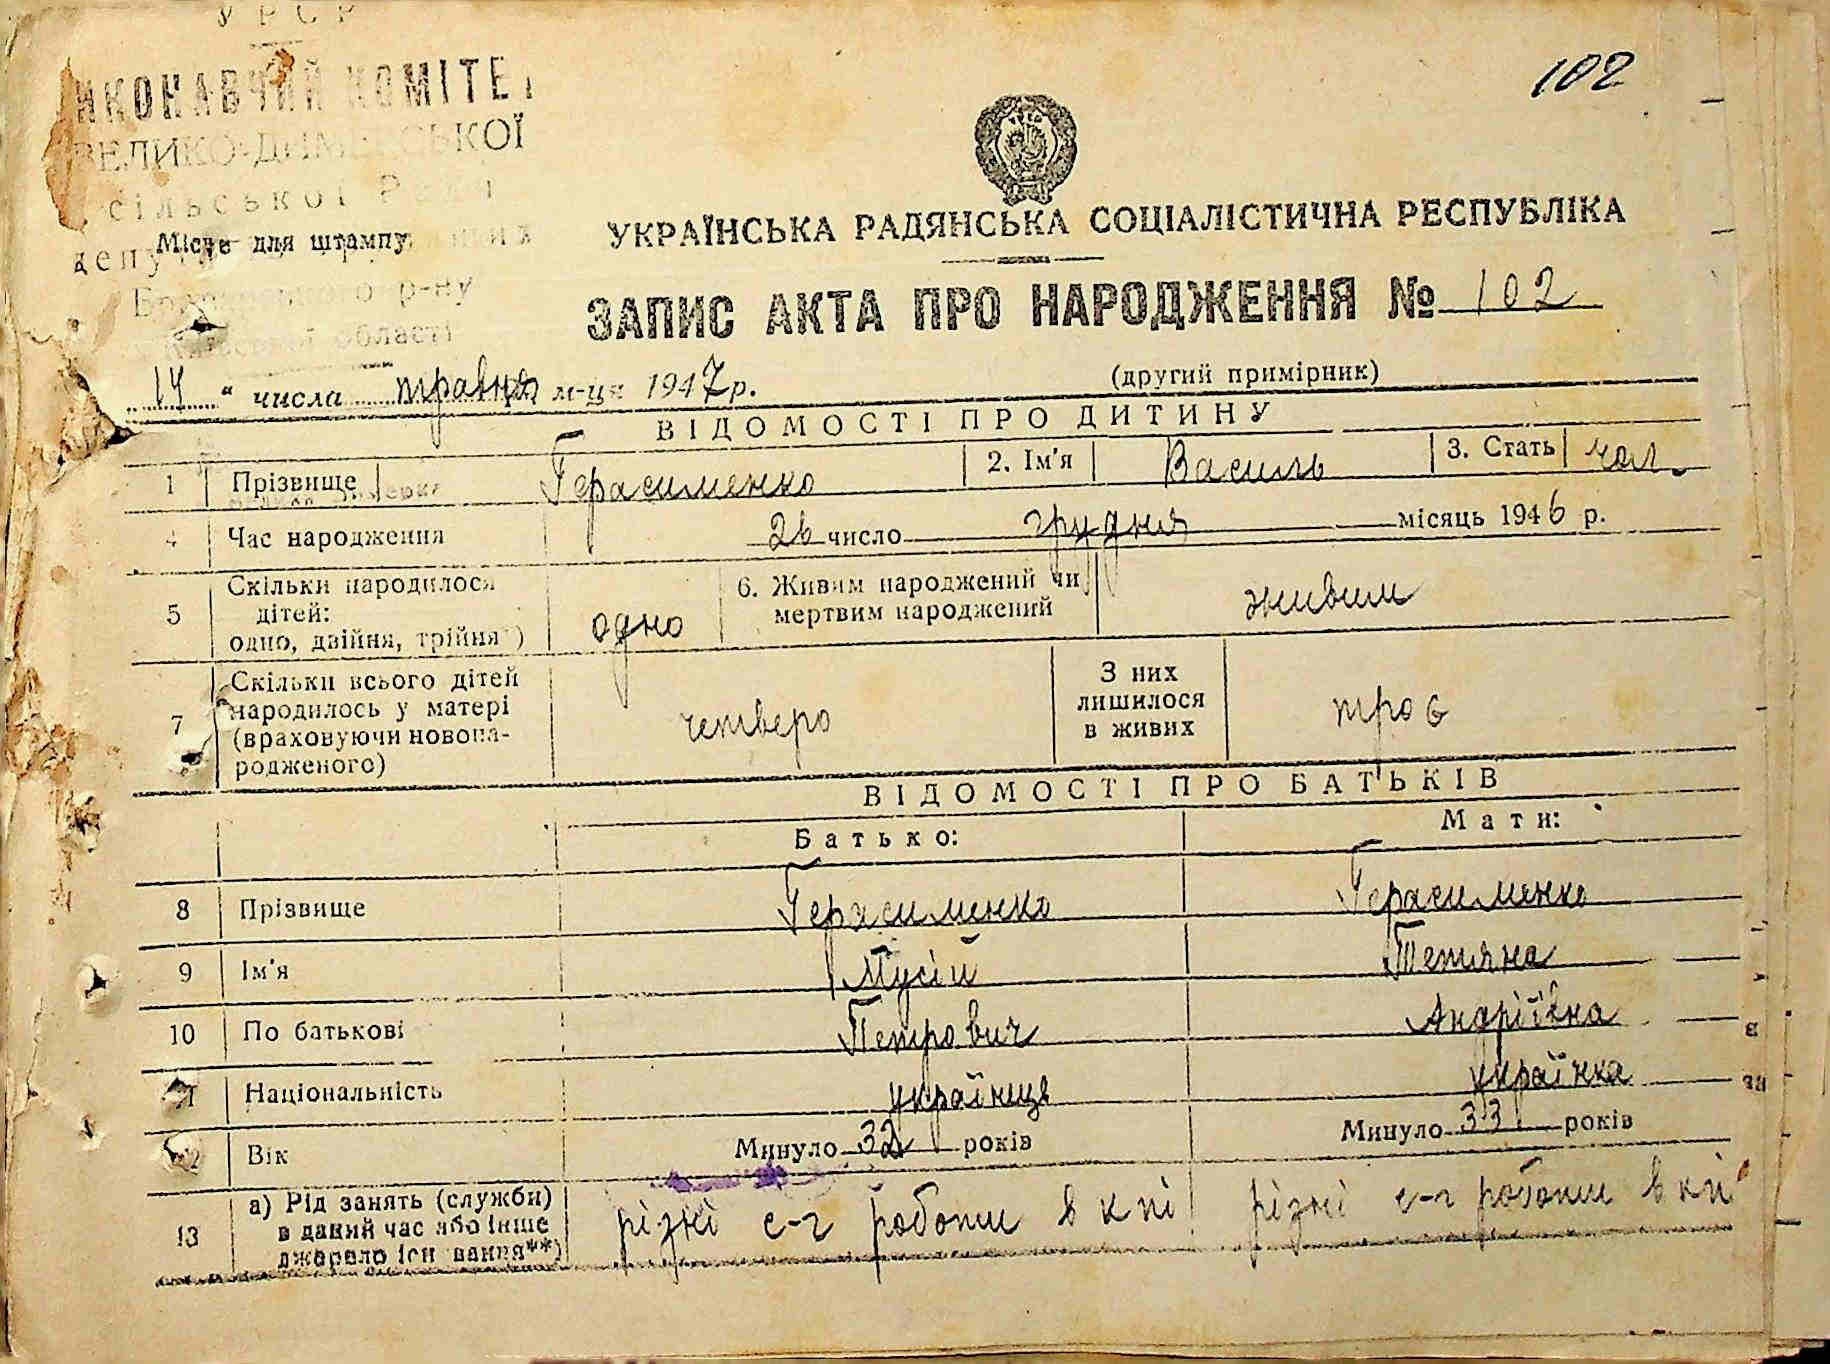 УРСР
102
ИКОНАВЧИЙ КОМІТЕТ
ВЕЛИКО-ДИМЕРСЬКОЇ
сільської Ради
Місце для штампу
р-ну
області
УКРАЇНСЬКА РАДЯНСЬКА СОЦІАЛІСТИЧНА РЕСПУБЛІКА
ЗАПИС АКТА ПРО НАРОДЖЕННЯ № 102
14 " числа травня м-ця 1947 р.
(другий примірник)
ВІДОМОСТІ ПРО ДИТИНУ
1 Прізвище Герасименко 2. Ім'я Василь 3. Стать чол.
4 Час народження 26 число грудня місяць 1946 р.
5 Скільки народилося дітей: одно, двійня, трійня*) одно 6. Живим народжений чи мертвим народжений живим
7 Скільки всього дітей народилось у матері (враховуючи новона-родженого) четверо З них лишилося в живих троє
ВІДОМОСТІ ПРО БАТЬКІВ
Батько: Мати:
8 Прізвище Герасименко Герасименко
9 Ім'я Мусій Тетяна
10 По батькові Петрович Андріївна
є
11 Національність українець українка
за
12 Вік Минуло 32 років Минуло 33 років
13 а) Рід занять (служби) в даний час або інше джерело існ вання**) різні с-г роботи в к-пі різні с-г роботи в к-пі